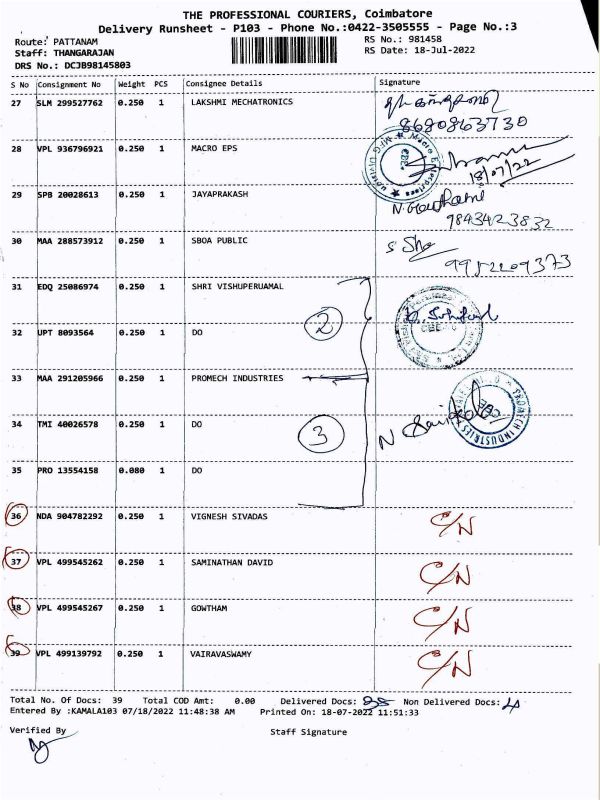 THE PROFESSIONAL COURIERS, Coimbatore
Delivery Runsheet - P103 - Phone No.:0422-3505555 - Page No.:3
Route: PATTANAM RS No.: 981458
Staff: THANGARAJAN RS Date: 18-Jul-2022
DRS No.: DCJB98145803
S No Consignment No Weight PCS Consignee Details Signature
27 SLM 299527762 0.250 1 LAKSHMI MECHATRONICS
8680863730
28 VPL 936796921 0.250 1 MACRO EPS
18/07/22
29 SPB 20028613 0.250 1 JAYAPRAKASH N. Gowtham
9843423832
30 MAA 288573912 0.250 1 SBOA PUBLIC
9952209373
31 EDQ 25086974 0.250 1 SHRI VISHUPERUAMAL
2
32 UPT 8093564 0.250 1 DO
33 MAA 291205966 0.250 1 PROMECH INDUSTRIES
PROMECH INDUSTRIES
34 TMI 40026578 0.250 1 DO
3
35 PRO 13554158 0.080 1 DO
36 NDA 904782292 0.250 1 VIGNESH SIVADAS C/N
37 VPL 499545262 0.250 1 SAMINATHAN DAVID C/N
38 VPL 499545267 0.250 1 GOWTHAM C/N
39 VPL 499139792 0.250 1 VAIRAVASWAMY C/N
Total No. Of Docs: 39 Total COD Amt: 0.00 Delivered Docs: 35 Non Delivered Docs: 4
Entered By :KAMALA103 07/18/2022 11:48:38 AM Printed On: 18-07-2022 11:51:33
Verified By Staff Signature